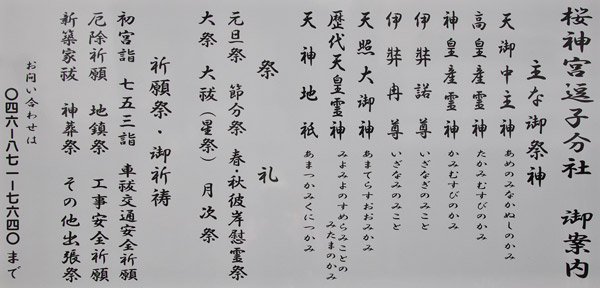 桜神宮逗子分社　御案内
主な御祭神
天御中主神　あめのみなかぬしのかみ
高皇産霊神　たかみむすびのかみ
神皇産霊神　かみむすびのかみ
伊弉諾尊　いざなぎのみこと
伊弉冉尊　いざなみのみこと
天照大御神　あまてらすおおみかみ
歴代天皇霊神　みよみよのすめらみことのみたまのかみ
天神地祇　あまつかみくにつかみ
祭　礼
元旦祭　節分祭　春・秋彼岸慰霊祭
大祭　大祓（星祭）　月次祭
祈願祭・御祈祷
初宮詣　七五三詣　車祓交通安全祈願
厄除祈願　地鎮祭　工事安全祈願
新築家祓　神葬祭　その他出張祭
お問い合わせは
〇四六－八七一－七六四〇まで